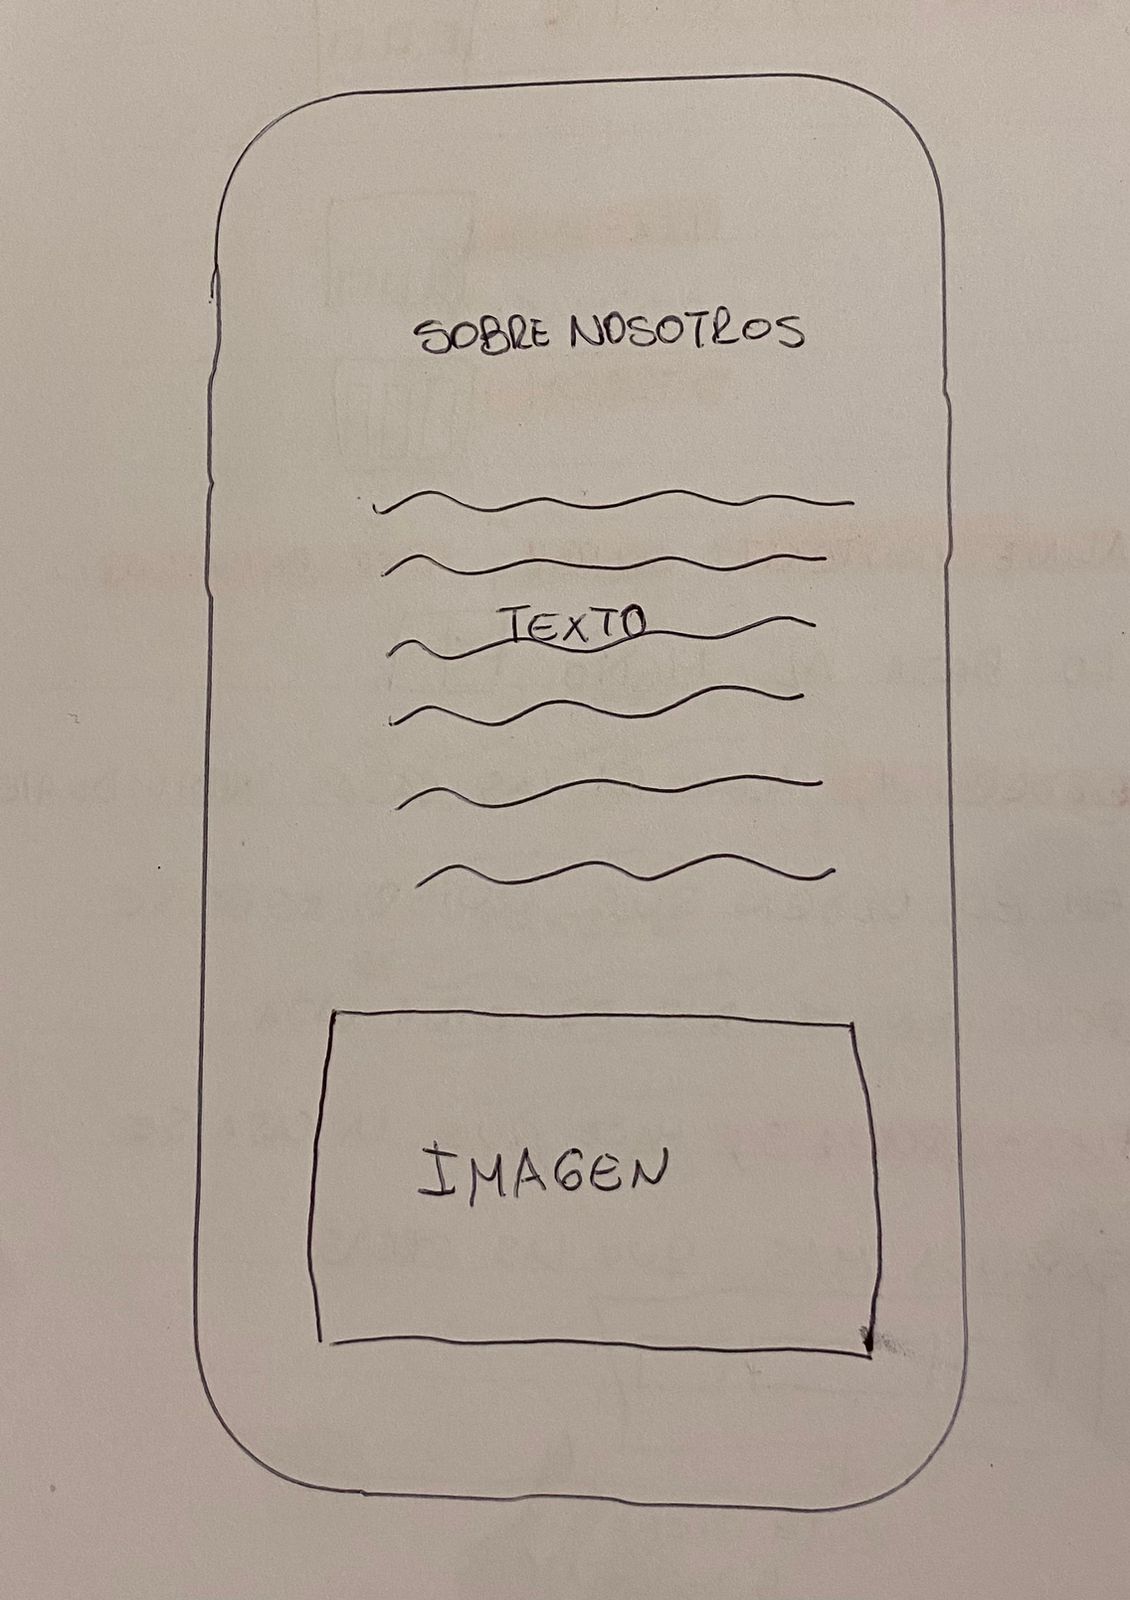 SOBRE NOSOTROS
TEXTO
IMAGEN